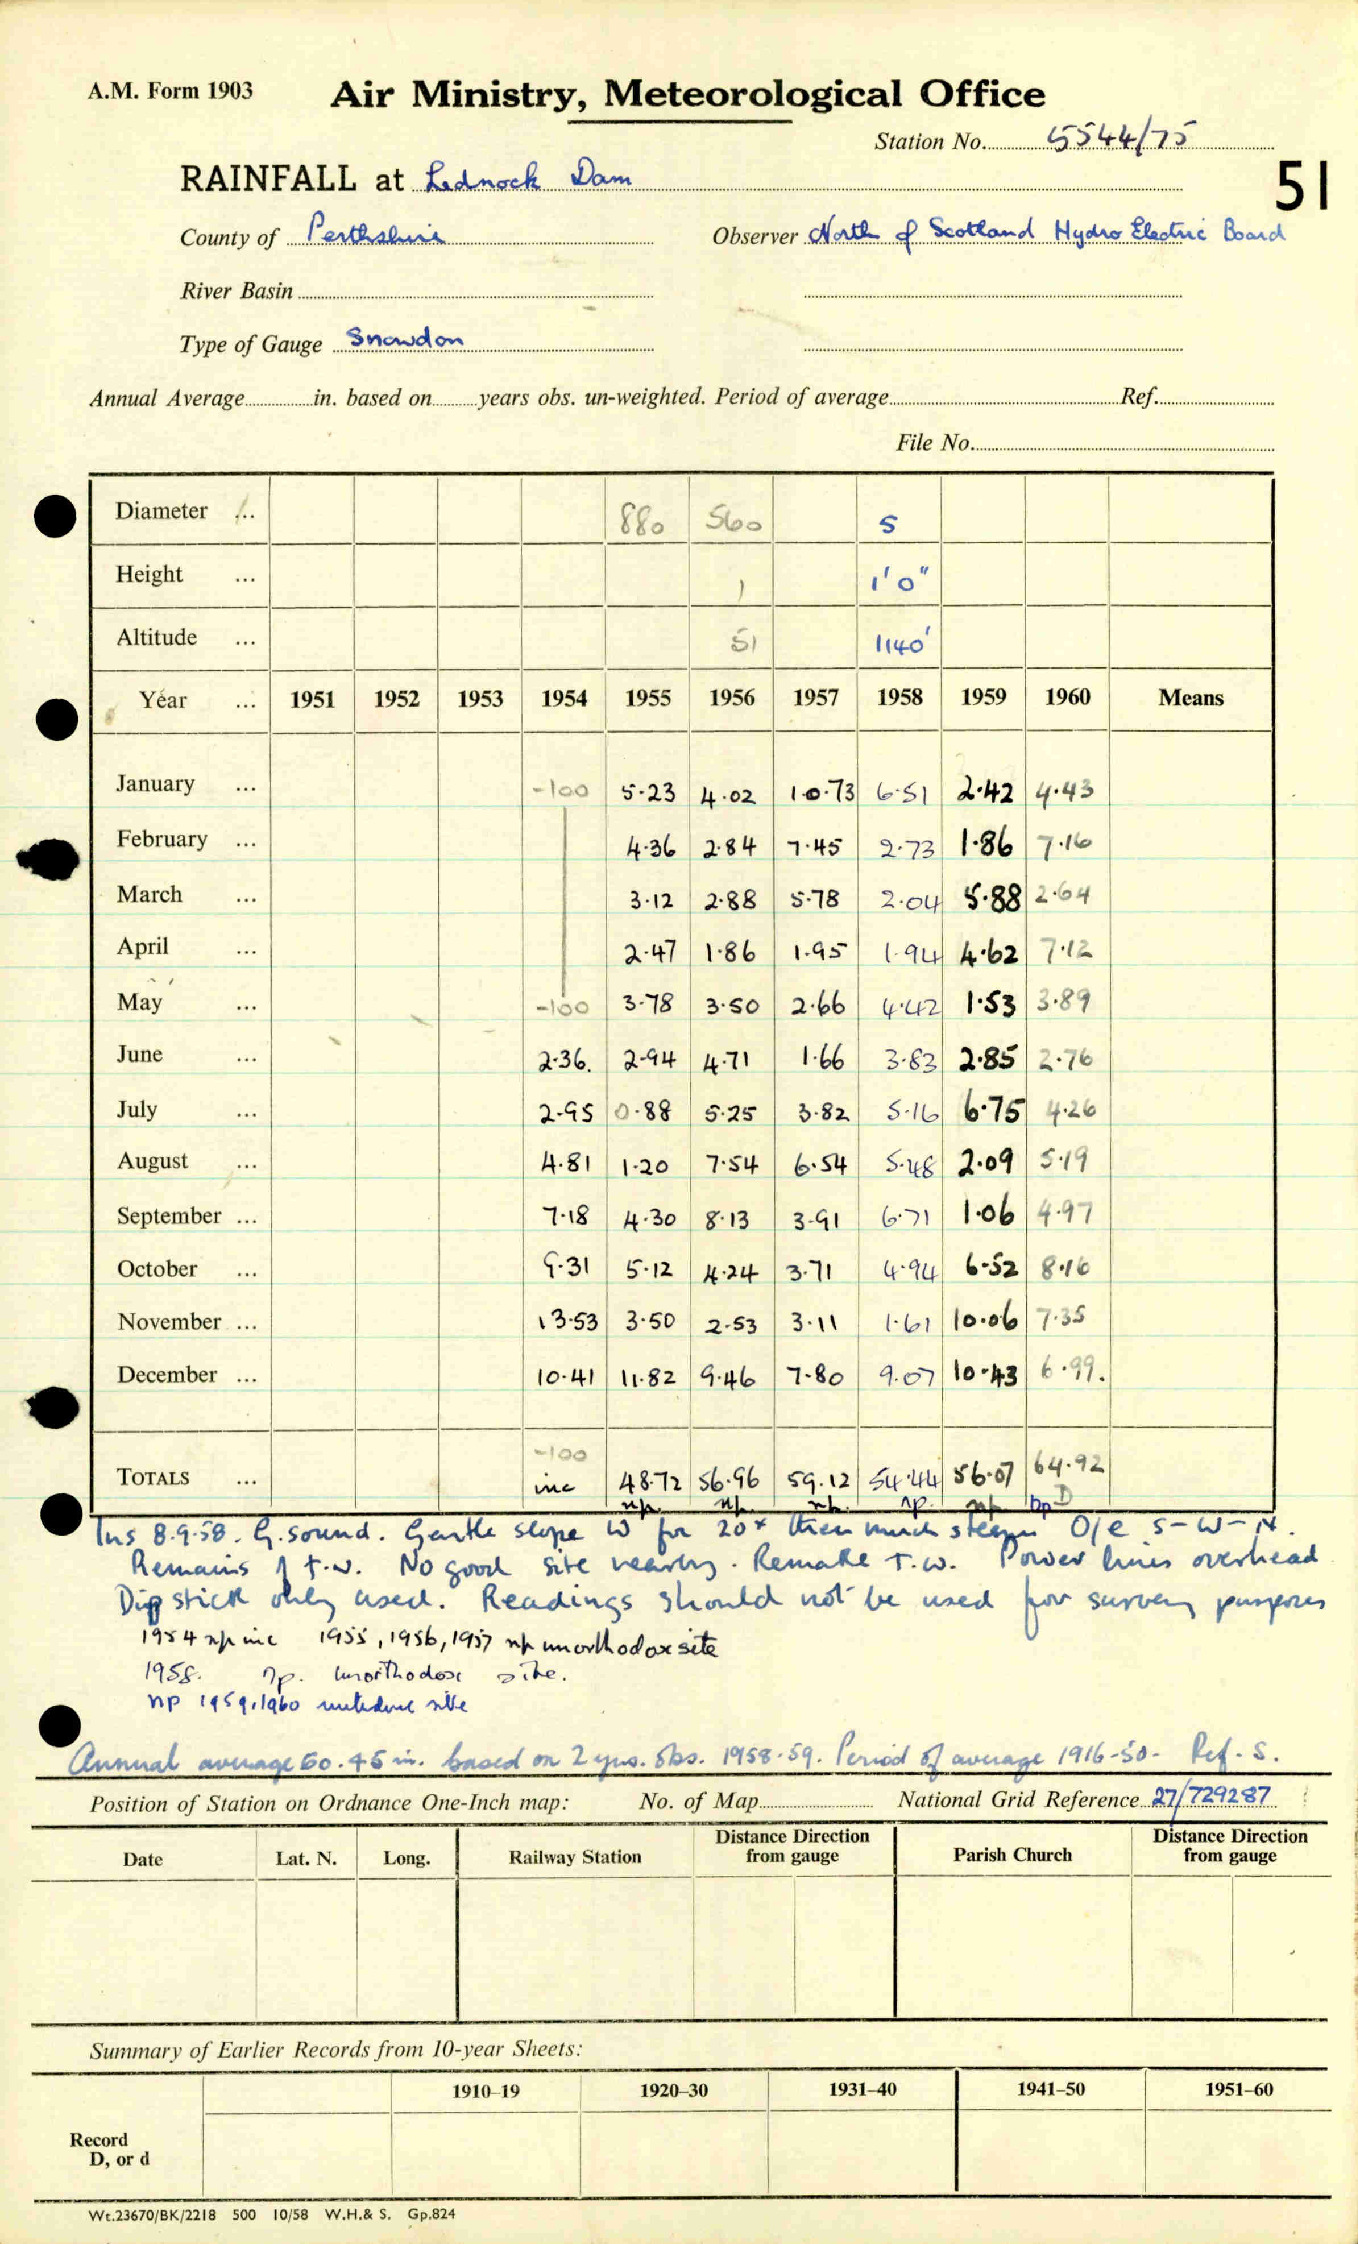 A.M. Form 1903 Air Ministry, Meteorological Office
Station No. 5544/75
RAINFALL at Lednock Dam 51
County of Perthshire Observer North of Scotland Hydro Electric Board
River Basin
Type of Gauge Snowdon
Annual Average in. based on years obs. un-weighted. Period of average Ref.
File No.
Diameter ... 880 560 5
Height ... 1 1'0"
Altitude ... 51 1140'
Year ... 1951 1952 1953 1954 1955 1956 1957 1958 1959 1960 Means
January ... -100 5.23 4.02 10.73 6.51 2.42 4.43
February ... 4.36 2.84 7.45 2.73 1.86 7.16
March ... 3.12 2.88 5.78 2.04 5.88 2.64
April ... 2.47 1.86 1.95 1.94 4.62 7.12
May ... -100 3.78 3.50 2.66 4.42 1.53 3.89
June ... 2.36. 2.94 4.71 1.66 3.83 2.85 2.76
July ... 2.95 0.88 5.25 3.82 5.16 6.75 4.26
August ... 4.81 1.20 7.54 6.54 5.48 2.09 5.19
September ... 7.18 4.30 8.13 3.91 6.71 1.06 4.97
October ... 9.31 5.12 4.24 3.71 4.94 6.52 8.16
November ... 13.53 3.50 2.53 3.11 1.61 10.06 7.35
December ... 10.41 11.82 9.46 7.80 9.07 10.43 6.99.
-100
TOTALS ... inc 48.72 56.96 59.12 54.44 56.07 64.92
np. np. np. np. np np D
Ins 8.9.58. G. sound. Gentle slope W for 20x then much steeper O/e S-W-N.
Remains of t.w. No good site nearby. Remake T.W. Power lines overhead
Dip stick only used. Readings should not be used for survey purposes
1954 np inc 1955, 1956, 1957 np unorthodox site
1958. np. unorthodox site.
np 1959, 1960 site
Annual average 60.45 in. based on 2 yrs. obs. 1958-59. Period of average 1916-50. Ref. S.
Position of Station on Ordnance One-Inch map: No. of Map National Grid Reference 27/729287
Date Lat. N. Long. Railway Station Distance Direction from gauge Parish Church Distance Direction from gauge
Summary of Earlier Records from 10-year Sheets:
1910-19 1920-30 1931-40 1941-50 1951-60
Record
D, or d
Wt.23670/BK/2218 500 10/58 W.H.& S. Gp.824